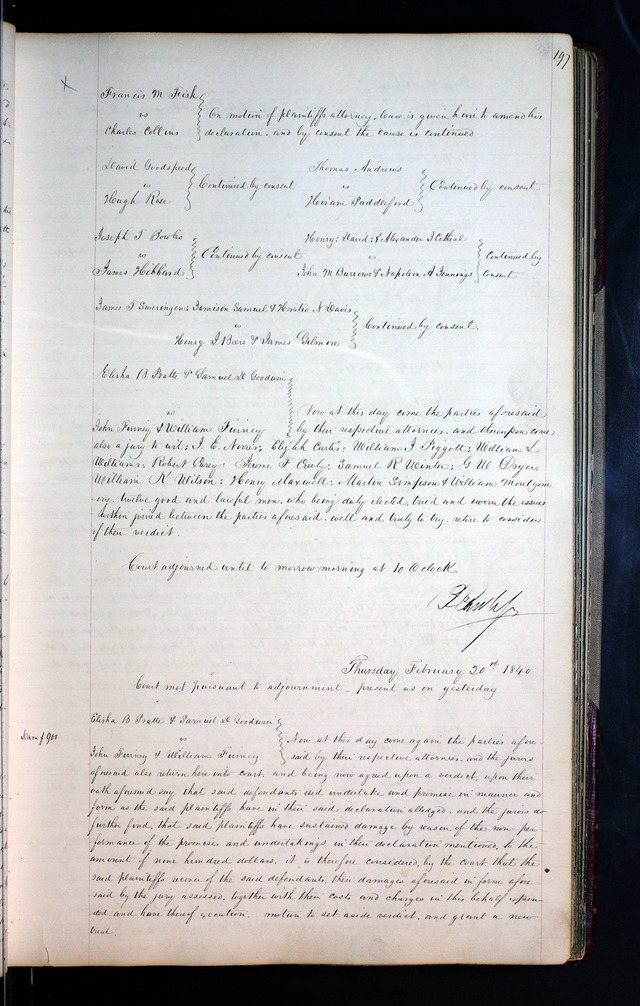 197
x
Francis M Fisk
vs
Charles Collins
On motion of plaintiffs attorney, leave is given him to amend his
declaration, and by consent the cause is continued
David Goodspeed
vs
Hugh Rose
Continued by consent
Thomas Andrews
vs
Hiram Paddleford
Continued by consent
Joseph T Bowles
vs
James Hibbard
Continued by consent
Henry: David: & Alexander I Cotheal
vs
John M Burrows & Napoleon A Jennings
Continued by
consent
James T Sweringen: Jamison Samuel & Horatio N Davis
vs
Henry I Beers & James Gilmore
Continued by consent.
Elisha B Pratte & Samuel D Goodwin
vs
John Finney & William Finney
Now at this day come the parties aforesaid
by their respective attornies. and thereupon come
also a jury to wit; J. E. Norris; Elijah Curtis; William I Piggott; William L
Williams; Robert Carey; F Cresly; Samuel R Winter; G W Dryer
William K Wilson; Henry Maxwell; Martin Simpson & William Montgom
ery, twelve good and lawful men, who being duly elected, tried and sworn the issues
within joined between the parties aforesaid, well and truly to try, retire to consider
of their verdict.
Court adjourned until to morrow morning at 10 O'clock
Thursday February 20th 1840
Court met pursuant to adjournment - present as on yesterday
Elisha B Pratte & Samuel D Goodwin
vs
John Finney & William Finney
Dam $900
Now at this day come again the parties afore-
said by their respective attornies, and the jurors
aforesaid also return here into court, and being now agreed upon a verdict, upon their
oath aforesaid say that said defendants did undertake and promise in manner and
form as the said plaintiffs have in their said declaration alledged. and the jurors do
further find, that said plaintiffs have sustained damage by reason of the non per
formance of the promises and undertakings in their declaration mentioned, to the
amount of nine hundred dollars. it is therefore considered, by the court, that the
said plaintiffs recover of the said defendants, their damages aforesaid in form afore
said by the jury assessed, together with their costs and charges in this behalf expen-
ded and have thereof execution. motion to set aside verdict, and grant a new
trial.